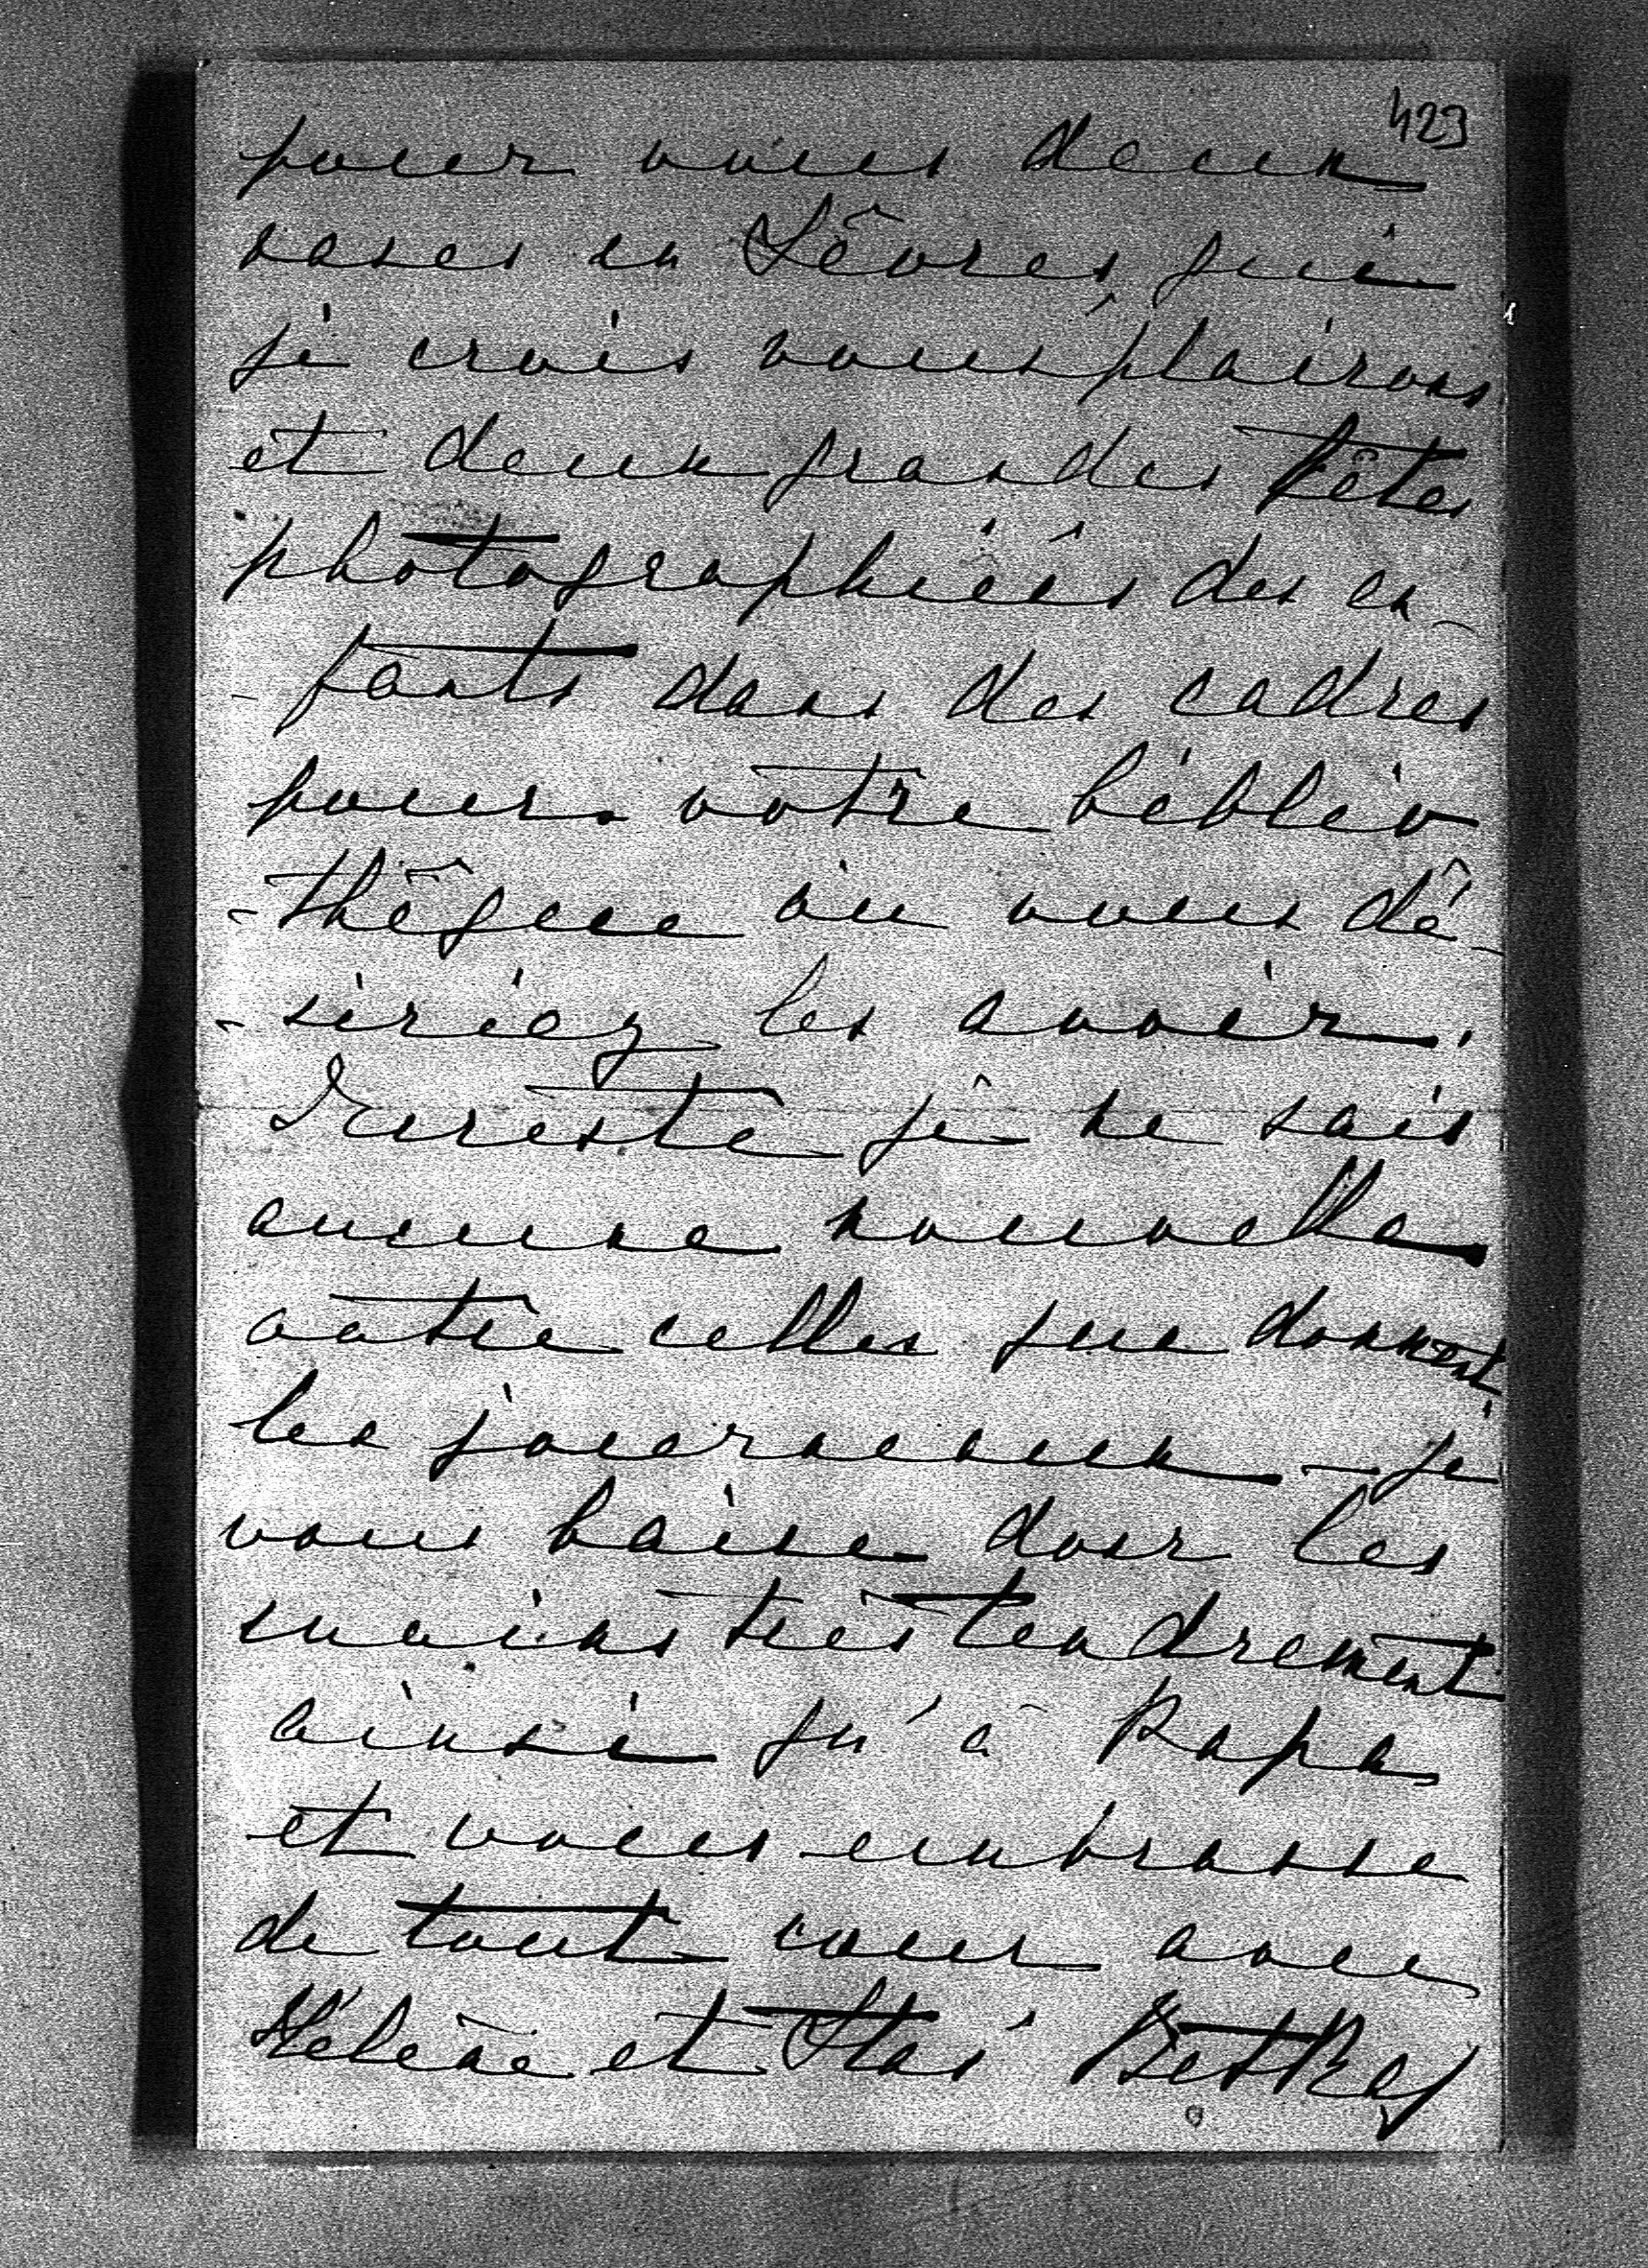 423
pour vous deux
vases en Sêvres qui
je crois vous plairons
et deux grandes têtes
photographiées des en-
-fants dans des cadres
pour votre biblio
-thêque où vous dé-
-siriez les avoir.
Dureste je ne sais
aucune nouvelle
outre celles que donnent
les journeaux - je
vous baise donc les
mains très tendrement
ainsi qu'à Papa
et vous embrasse
de tout coeur avec
Hélène et Stas